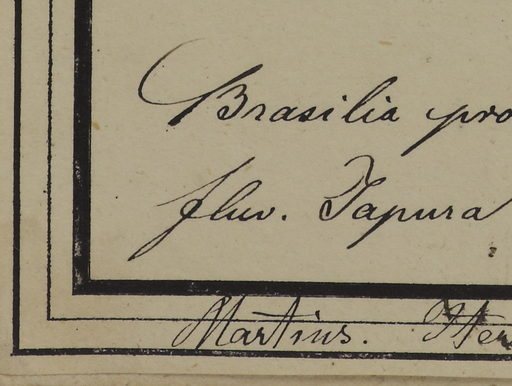 Brasilia pro
fluv. Japura
Martius. Iter